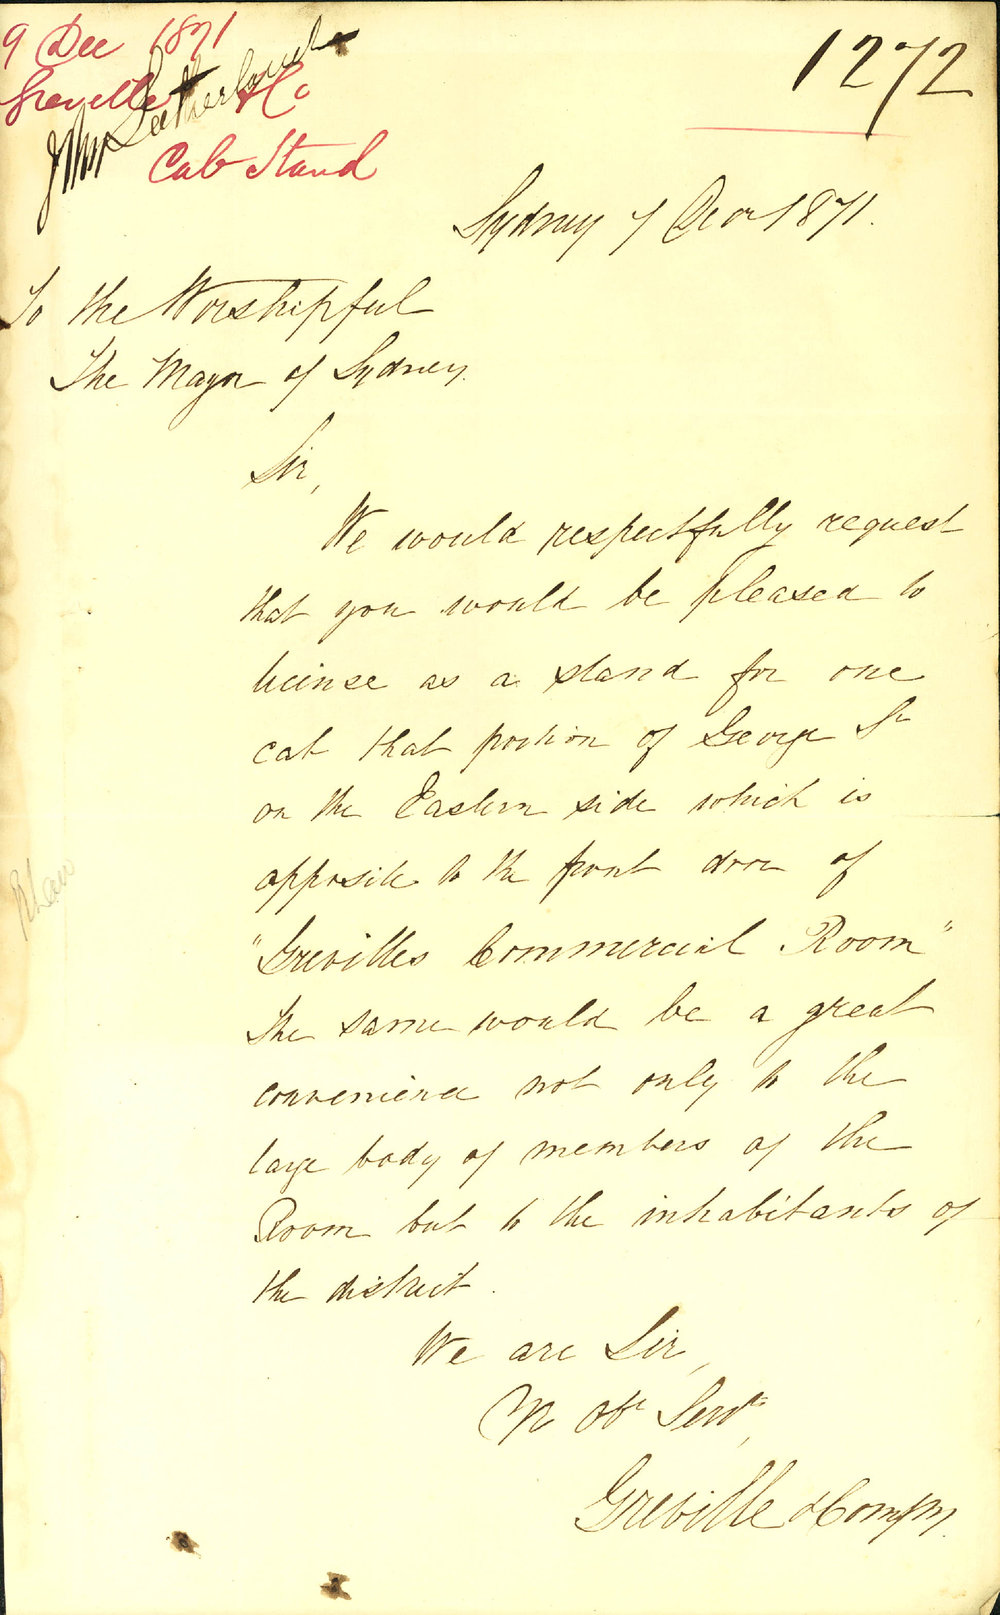 9 Dec 1871
Greville & Co
Cab Stand
1272
Sydney 7 Decr 1871.
To the Worshipful
The Mayor of Sydney.
Sir,
We would respectfully request
that you would be pleased to
license as a stand for one
cab that portion of George St
on the Eastern side which is
opposite to the front door of
"Grevilles Commercial Room"
The same would be a great
convenience not only to the
large body of members of the
Room but to the inhabitants of
the district.
We are Sir,
Yr Obt Servts,
Greville & Compy.